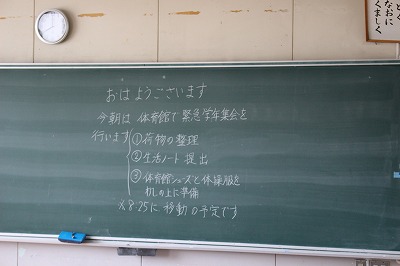 おはようございます
今朝は 体育館で 緊急学年集会を
行います
①荷物の整理
②生活ノート 提出
③体育館シューズと体操服を
机の上に準備
※8:25に 移動の予定です